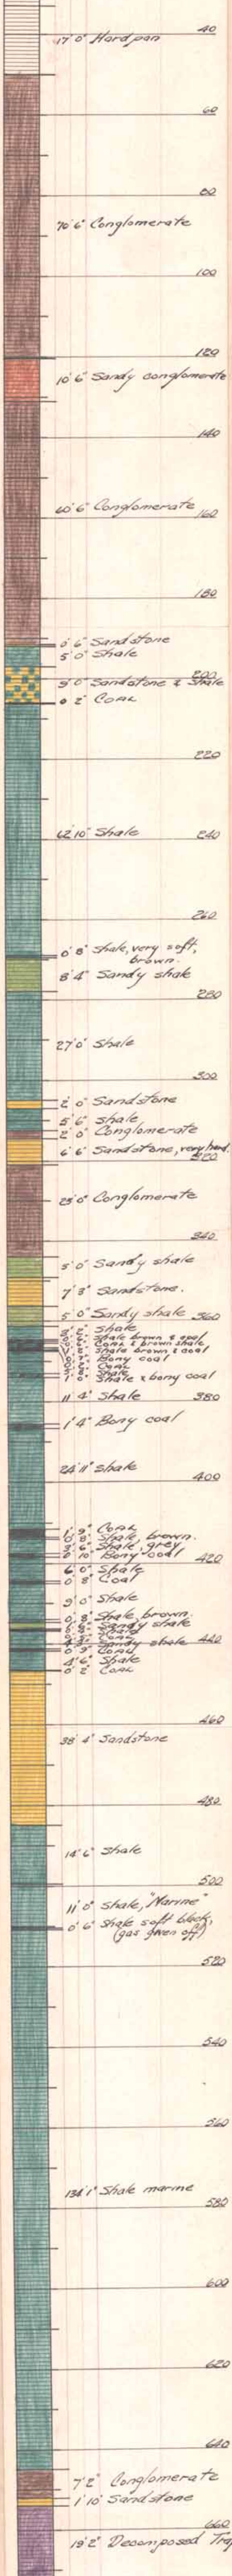 40
17' 0" Hardpan
60
80
70' 6" Conglomerate
100
120
10' 6" Sandy conglomerate
140
60' 6" Conglomerate
160
180
0' 6" Sandstone
5' 0" Shale
200
9' 0" Sandstone & Shale
0' 2" COAL
220
62' 10" Shale
240
260
0' 8" Shale, very soft,
brown.
8' 4" Sandy shale
280
27' 0" Shale
300
2' 0" Sandstone
5' 6" shale
2' 0" Conglomerate
6' 6" Sandstone, very hard.
320
23' 0" Conglomerate
340
5' 0" Sandy shale
7' 3" Sandstone.
5' 0" Sandy shale
360
Shale
Shale brown & coal
Coal & brown shale
Shale brown & coal
Bony coal
Coal
Shale
Shale & bony coal
11' 4" Shale
380
1' 4" Bony coal
24' 11" Shale
400
1' 9" COAL
0' 8" Shale, brown.
3' 6" Shale, grey
0' 10" Bony coal
420
6' 0" Shale
0' 8" Coal
9' 0" Shale
0' 8" Shale, brown.
Sandy shale
Sandy shale
440
4' 6" Shale
0' 2" COAL
460
38' 4" Sandstone
480
14' 6" Shale
500
11' 0" Shale, "Marine"
0' 6" Shale soft black,
(gas given off)
520
540
560
134' 1" Shale marine
580
600
620
640
7' 2" Conglomerate
1' 10" Sandstone
660
19' 2" Decomposed Trap